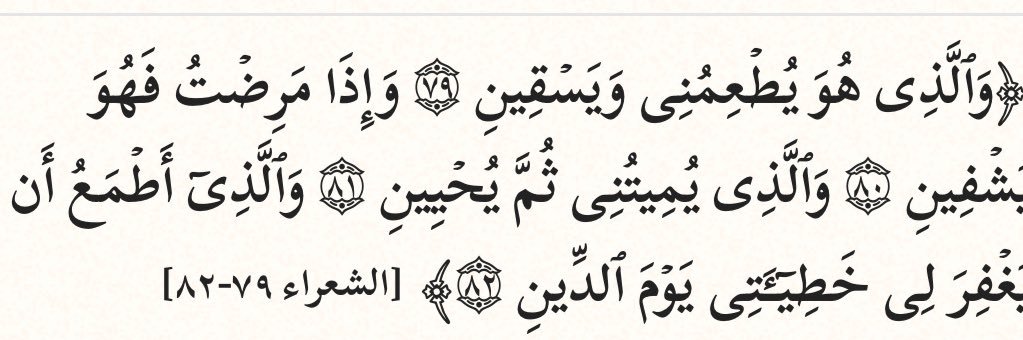 ﴿وَٱلَّذِى هُوَ يُطْعِمُنِى وَيَسْقِينِ ٧٩ وَإِذَا مَرِضْتُ فَهُوَ
يَشْفِينِ ٨٠ وَٱلَّذِى يُمِيتُنِى ثُمَّ يُحْيِينِ ٨١ وَٱلَّذِىٓ أَطْمَعُ أَن
يَغْفِرَ لِى خَطِيٓـَٔتِى يَوْمَ ٱلدِّينِ ٨٢﴾ [الشعراء ٧٩-٨٢]